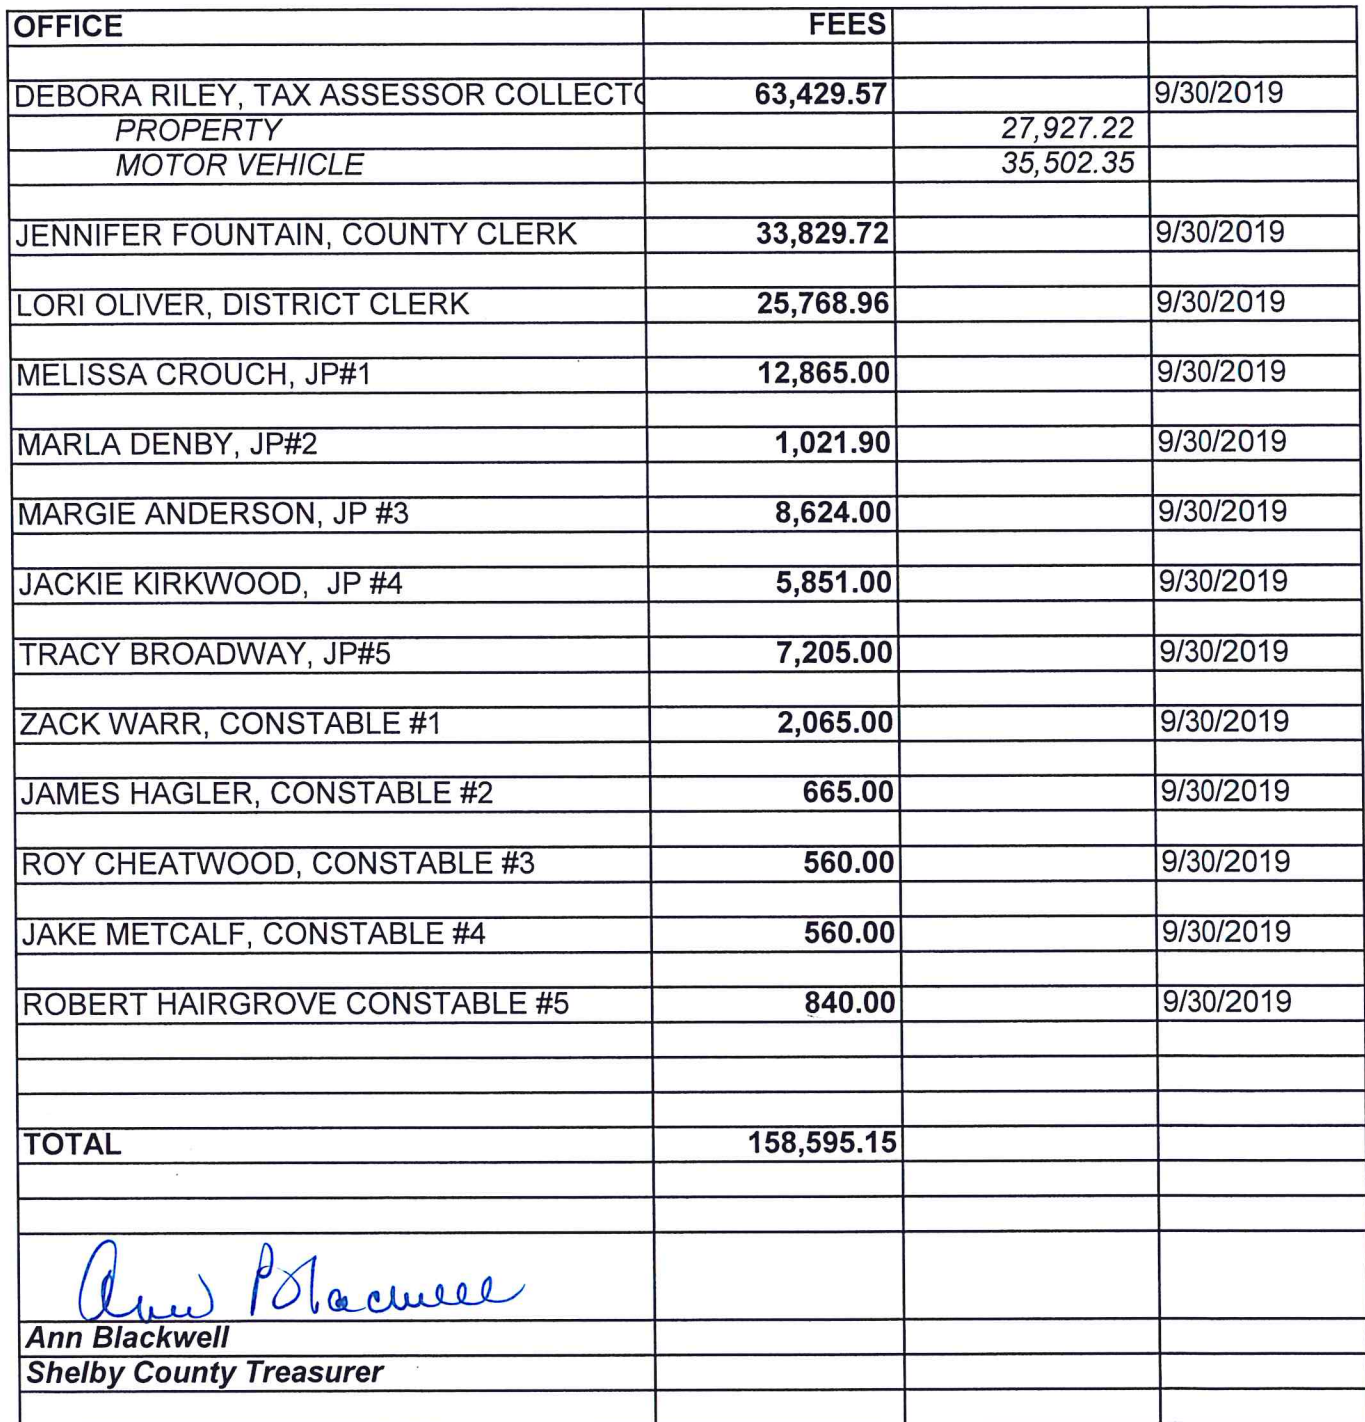 OFFICE FEES
DEBORA RILEY, TAX ASSESSOR COLLECTO 63,429.57 9/30/2019
PROPERTY 27,927.22
MOTOR VEHICLE 35,502.35
JENNIFER FOUNTAIN, COUNTY CLERK 33,829.72 9/30/2019
LORI OLIVER, DISTRICT CLERK 25,768.96 9/30/2019
MELISSA CROUCH, JP#1 12,865.00 9/30/2019
MARLA DENBY, JP#2 1,021.90 9/30/2019
MARGIE ANDERSON, JP #3 8,624.00 9/30/2019
JACKIE KIRKWOOD, JP #4 5,851.00 9/30/2019
TRACY BROADWAY, JP#5 7,205.00 9/30/2019
ZACK WARR, CONSTABLE #1 2,065.00 9/30/2019
JAMES HAGLER, CONSTABLE #2 665.00 9/30/2019
ROY CHEATWOOD, CONSTABLE #3 560.00 9/30/2019
JAKE METCALF, CONSTABLE #4 560.00 9/30/2019
ROBERT HAIRGROVE CONSTABLE #5 840.00 9/30/2019
TOTAL 158,595.15
Ann Blackwell
Ann Blackwell
Shelby County Treasurer